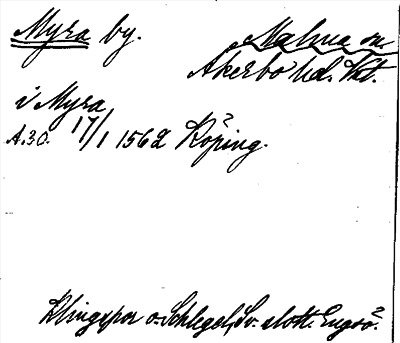 Myra by.
Malma sn.
Åkerbo hd. Vst.
i Myra
A.30. 17/1 1562 Köping.
Klingspor o. Schlegel, Sv. slott. Engsö